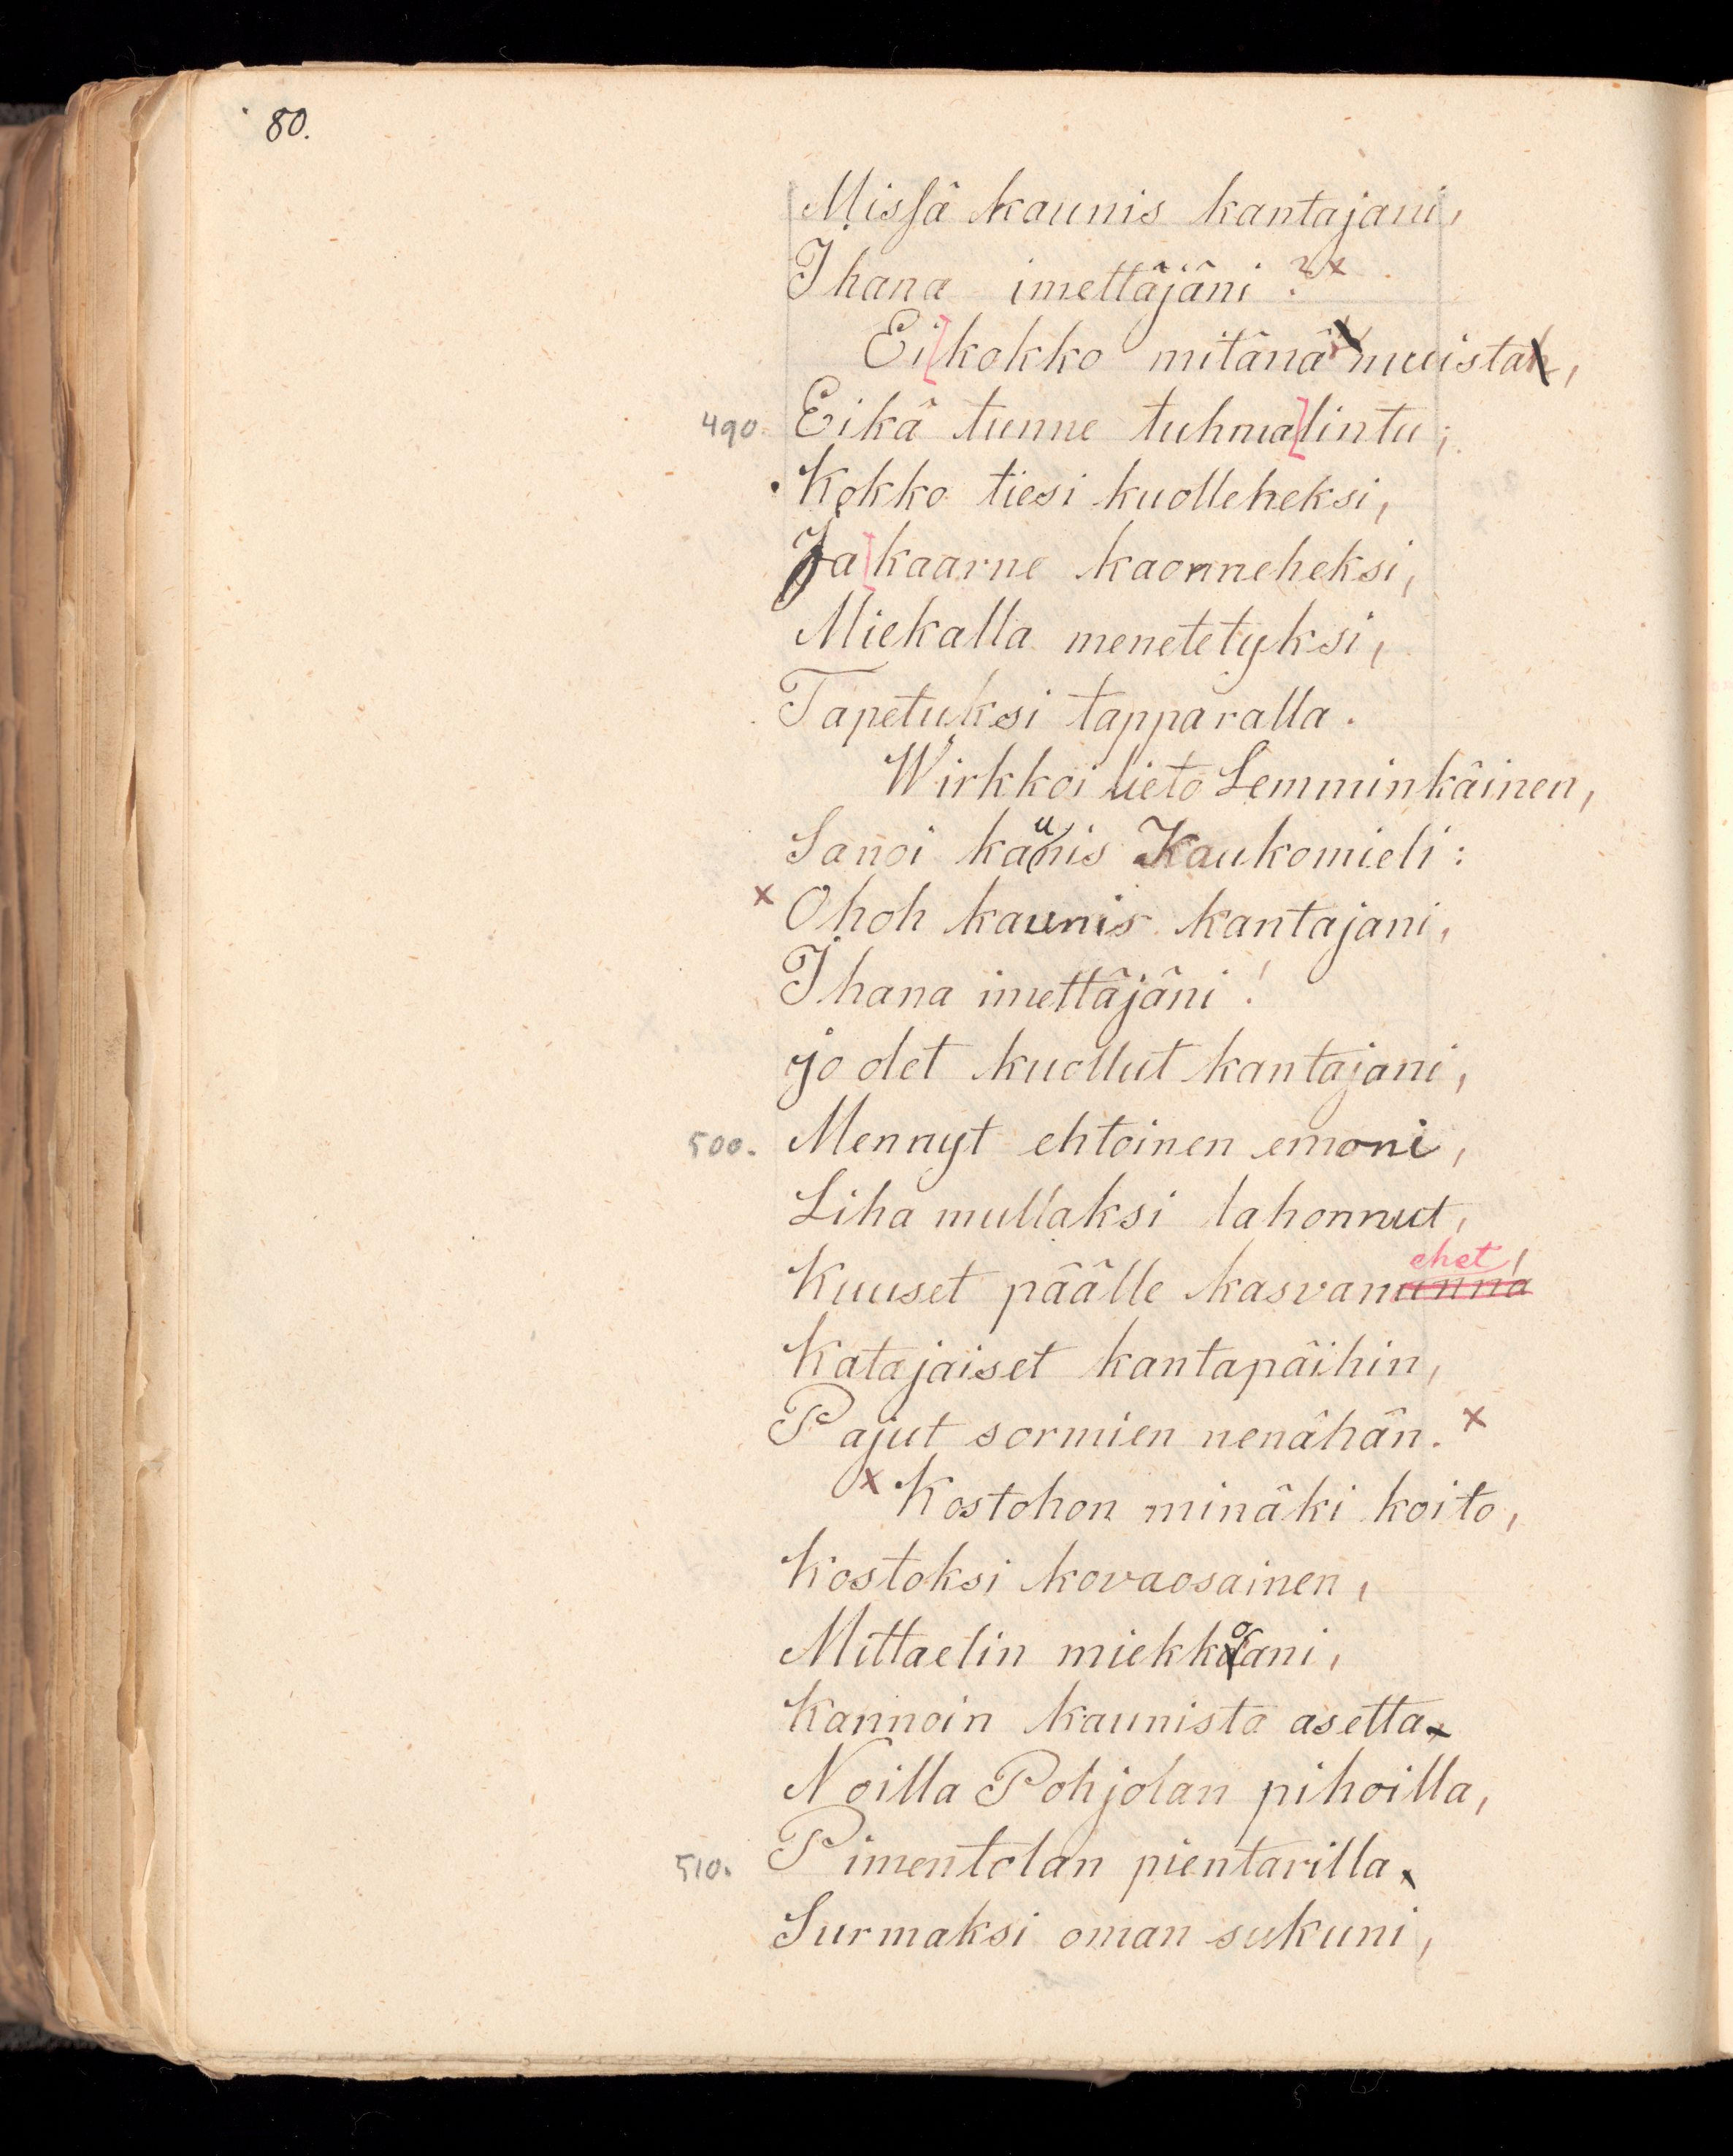 80.
Missä kaunis kantajani,
Ihana imettäjäni ? x
Ei[kokko mitänä muista,
490. Eikä tunne tuhma[lintu;
Kokko tiesi kuolleheksi,
Ja[kaarne kaonneheksi,
Miekalla menetetyksi,
Tapetuksi tapparalla.
Wirkkoi lieto Lemminkäinen,
Sanoi kaunis Kaukomieli:
x Ohoh kaunis kantajani,
Ihana imettäjäni !
jo olet kuollut kantajani,
500. Mennyt ehtoinen emoni,
Liha mullaksi lahonnut,
ehet,
Kuuset päälle kasvanunna
Katajaiset kantapäihin,
Pajut sormien nenähän. x
x Kostohon minäki koito,
Kostoksi kovaosainen,
Mittaelin miekkoani,
Kannoin kaunista asetta
Noilla Pohjolan pihoilla,
510. Pimentolan pientarilla
Surmaksi oman sukuni,